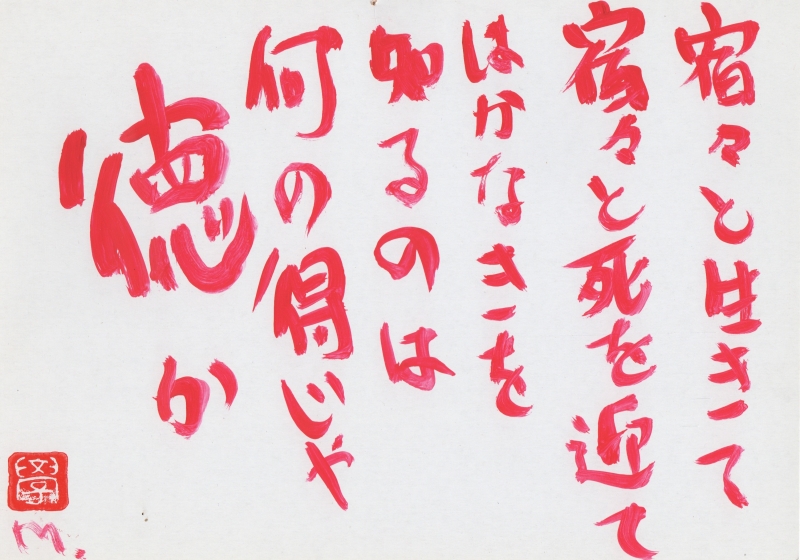 宿々と生きて
宿々と死を迎て
はかなさを
知るのは
何の得じゃ
徳か
學
M.